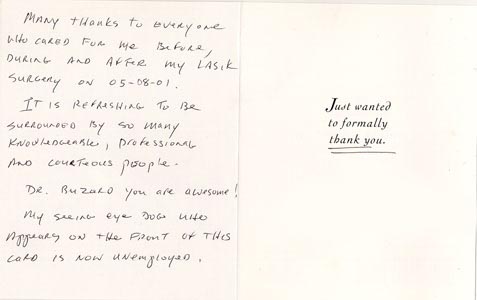 Many thanks to everyone
who cared for me before,
during and after my LASIK
surgery on 05-08-01.
It is refreshing to be
surrounded by so many
knowledgeable, professional
and courteous people.
Dr. Buzard you are awesome!
My seeing eye dog who
appears on the front of this
card is now unemployed.
Just wanted
to formally
thank you.